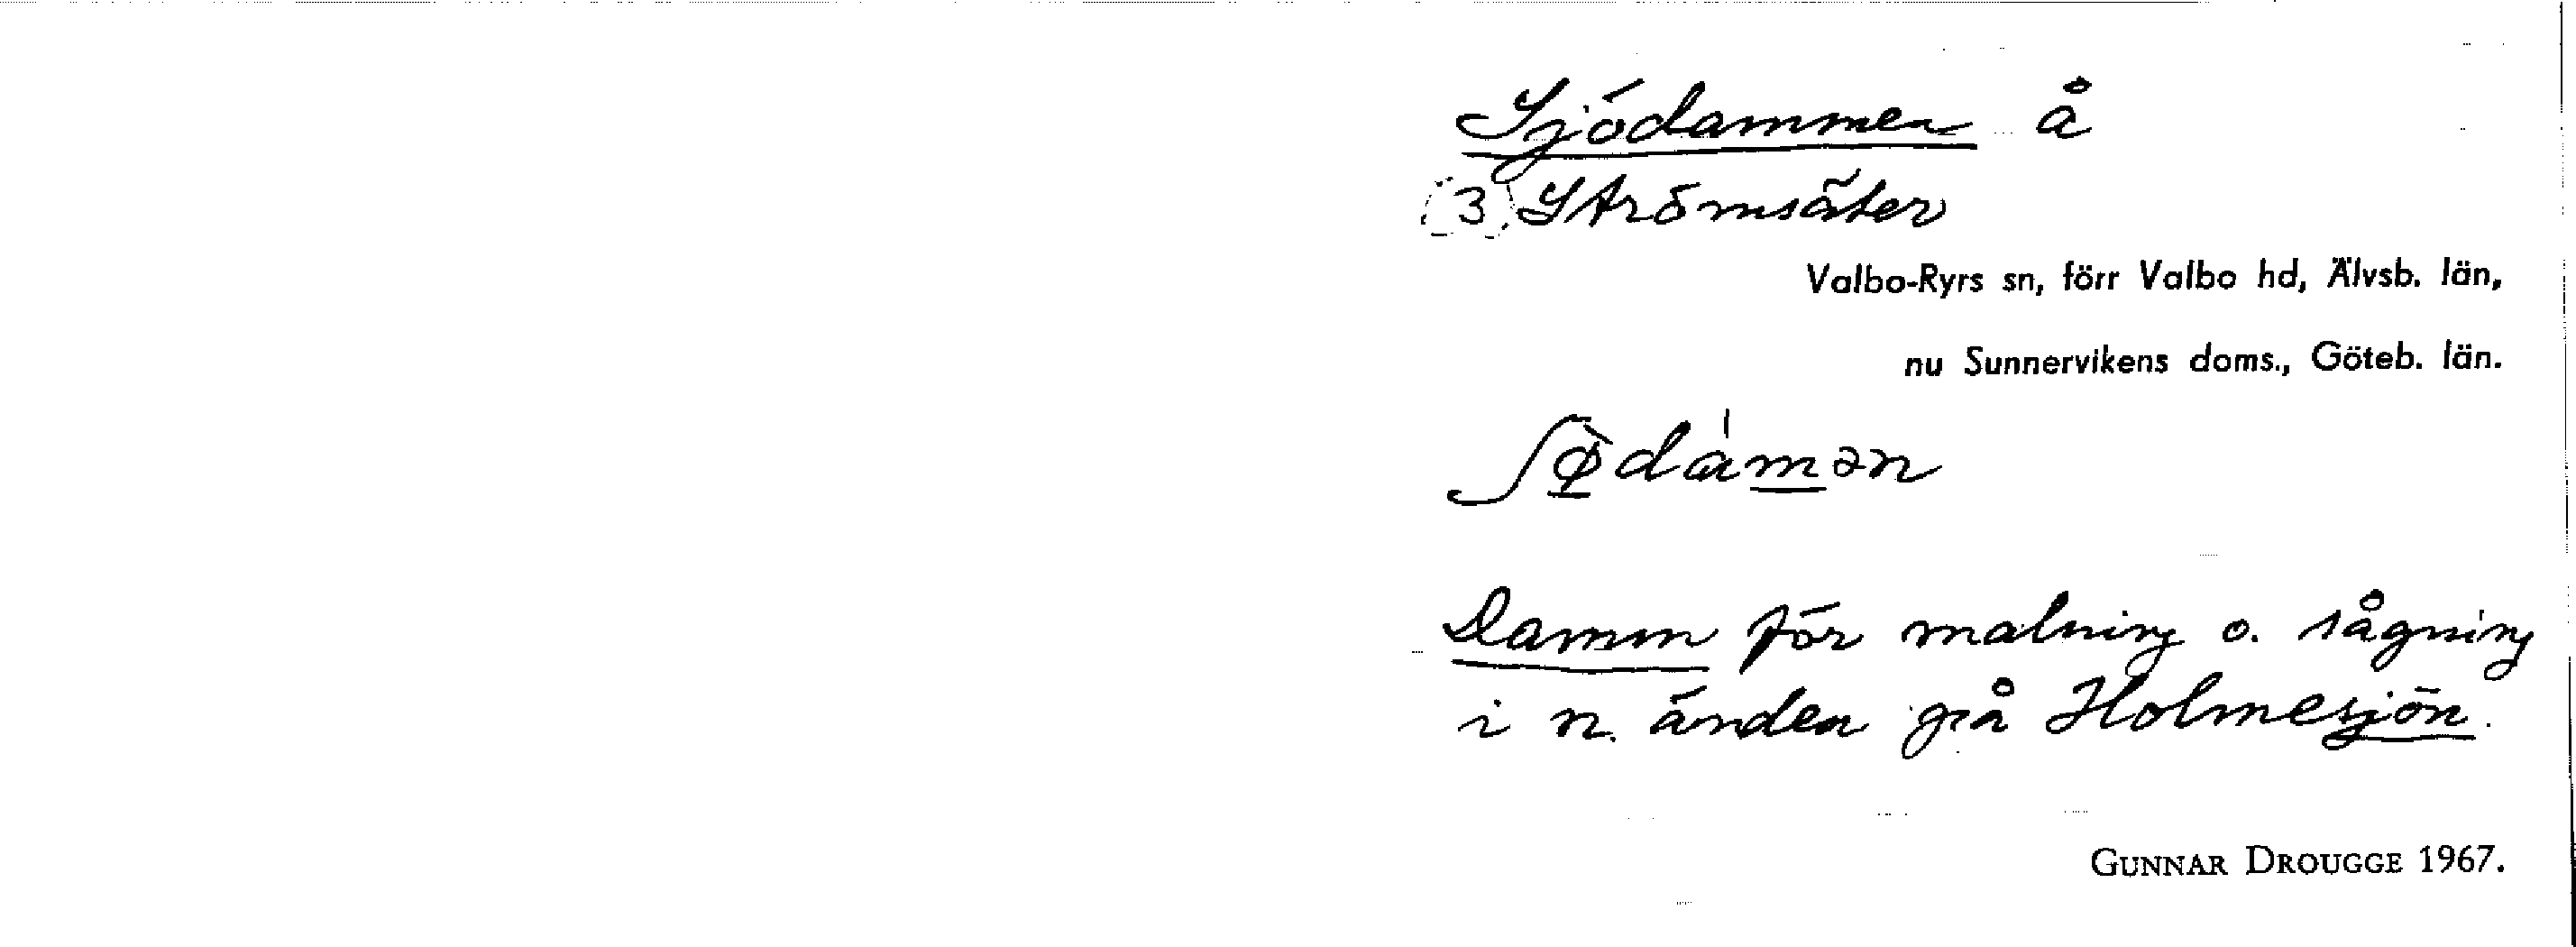 Sjödammen å
3 Strömsäter
Valbo-Ryrs sn, förr Valbo hd, Älvsb. län,
nu Sunnervikens doms., Göteb. län.
ʃø̀dàmən
Damm för malning o. sågning
i n. änden på Holmesjön.
GUNNAR DROUGGE 1967.